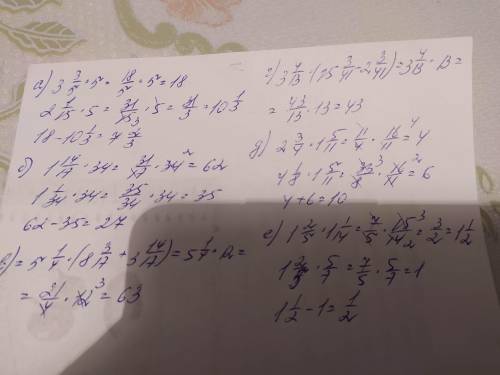 а) 3 3/5 · 5 = 18/5 · 5 = 18
2 1/15 · 5 = 31/15 · 5 = 31/3 = 10 1/3
18 - 10 1/3 = 7 2/3
б) 1 14/17 · 34 = 31/17 · 34 = 62
1 1/34 · 34 = 35/34 · 34 = 35
62 - 35 = 27
в) = 5 1/4 · (8 3/17 + 3 14/17) = 5 1/4 · 12 =
= 21/4 · 12 = 63
г) 3 4/13 · (15 3/41 - 2 3/41) = 3 4/13 · 13 =
= 43/13 · 13 = 43
д) 2 3/4 · 1 5/11 = 11/4 · 16/11 = 4
4 1/8 · 1 5/11 = 33/8 · 16/11 = 6
4 + 6 = 10
е) 1 2/5 · 1 1/14 = 7/5 · 15/14 = 3/2 = 1 1/2
1 2/5 · 5/7 = 7/5 · 5/7 = 1
1 1/2 - 1 = 1/2